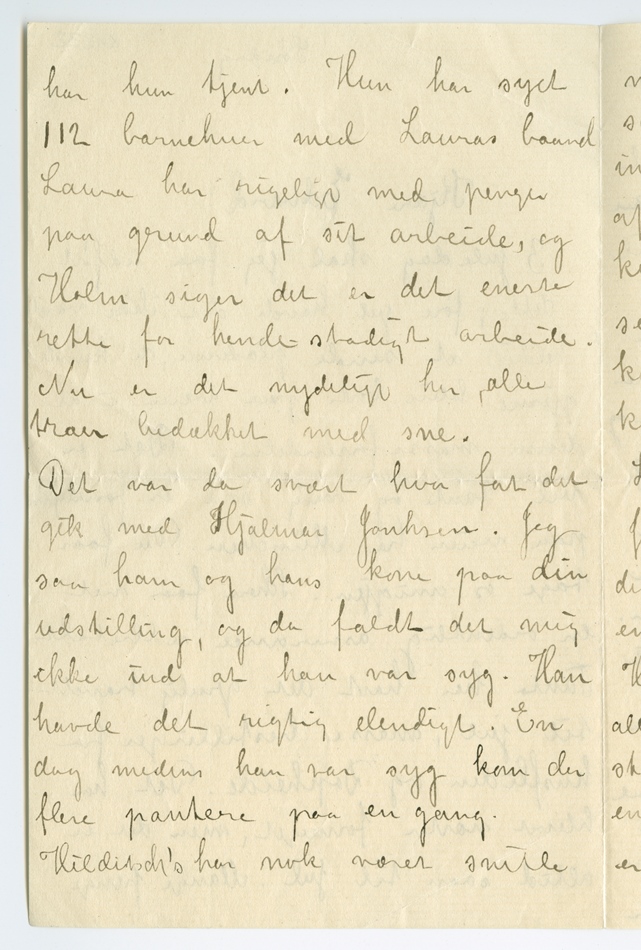 har hun tjent. Hun har syet
112 barnehuer med Lauras baand
Laura har rigeligt med penger
paa grund af sit arbeide, og
Holm siger det er det eneste
rette for hende - stadigt arbeide.
Nu er det nydeligt her, alle
træer bedækket med sne.
Det var da svært hvor fort det
gik med Hjalmar Jonhsen. Jeg
saa ham og hans kone paa din
udstilling, og da faldt det mig
ikke ind at han var syg. Han
havde det rigtig elendigt. En
dag medens han var syg kom der
flere pantere paa en gang.
Hilditsch's har nok været snille